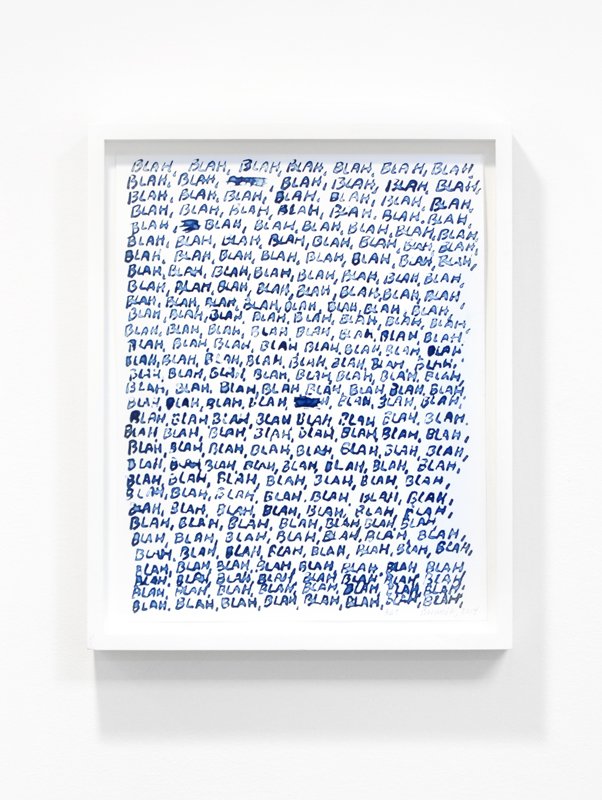 BLAH, BLAH, BLAH, BLAH, BLAH, BLAH, BLAH
BLAH, BLAH, BLAH, BLAH, BLAH, BLAH,
BLAH, BLAH, BLAH, BLAH, BLAH, BLAH, BLAH,
BLAH, BLAH, BLAH, BLAH, BLAH, BLAH, BLAH,
BLAH BLAH, BLAH, BLAH, BLAH, BLAH, BLAH,
BLAH, BLAH, BLAH, BLAH, BLAH, BLAH, BLAH, BLAH,
BLAH, BLAH, BLAH, BLAH, BLAH, BLAH, BLAH, BLAH,
BLAH, BLAH, BLAH, BLAH, BLAH, BLAH, BLAH, BLAH
BLAH, BLAH, BLAH, BLAH, BLAH, BLAH, BLAH, BLAH,
BLAH, BLAH, BLAH, BLAH, BLAH, BLAH, BLAH, BLAH
BLAH, BLAH, BLAH, BLAH, BLAH, BLAH, BLAH, BLAH,
BLAH, BLAH, BLAH, BLAH, BLAH, BLAH, BLAH, BLAH,
BLAH, BLAH, BLAH, BLAH, BLAH, BLAH, BLAH, BLAH
BLAH, BLAH, BLAH, BLAH, BLAH, BLAH, BLAH, BLAH,
BLAH, BLAH, BLAH, BLAH, BLAH, BLAH, BLAH, BLAH,
BLAH, BLAH, BLAH, BLAH, BLAH, BLAH, BLAH, BLAH,
BLAH, BLAH, BLAH, BLAH BLAH, BLAH, BLAH,
BLAH, BLAH, BLAH, BLAH, BLAH, BLAH, BLAH, BLAH,
BLAH, BLAH, BLAH, BLAH, BLAH, BLAH, BLAH, BLAH,
BLAH, BLAH, BLAH, BLAH, BLAH, BLAH, BLAH, BLAH
BLAH, BLAH, BLAH, BLAH, BLAH, BLAH, BLAH, BLAH,
BLAH, BLAH, BLAH, BLAH, BLAH, BLAH, BLAH
BLAH, BLAH, BLAH, BLAH, BLAH, BLAH, BLAH,
BLAH, BLAH, BLAH, BLAH, BLAH, BLAH, BLAH,
BLAH, BLAH, BLAH, BLAH, BLAH, BLAH, BLAH
BLAH, BLAH, BLAH, BLAH, BLAH, BLAH, BLAH,
BLAH, BLAH, BLAH, BLAH, BLAH, BLAH, BLAH, BLAH,
BLAH, BLAH, BLAH, BLAH, BLAH, BLAH, BLAH, BLAH
BLAH, BLAH, BLAH, BLAH, BLAH, BLAH, BLAH, BLAH,
BLAH, BLAH, BLAH, BLAH, BLAH, BLAH, BLAH, BLAH,
BLAH, BLAH, BLAH, BLAH, BLAH, BLAH, BLAH, BLAH,